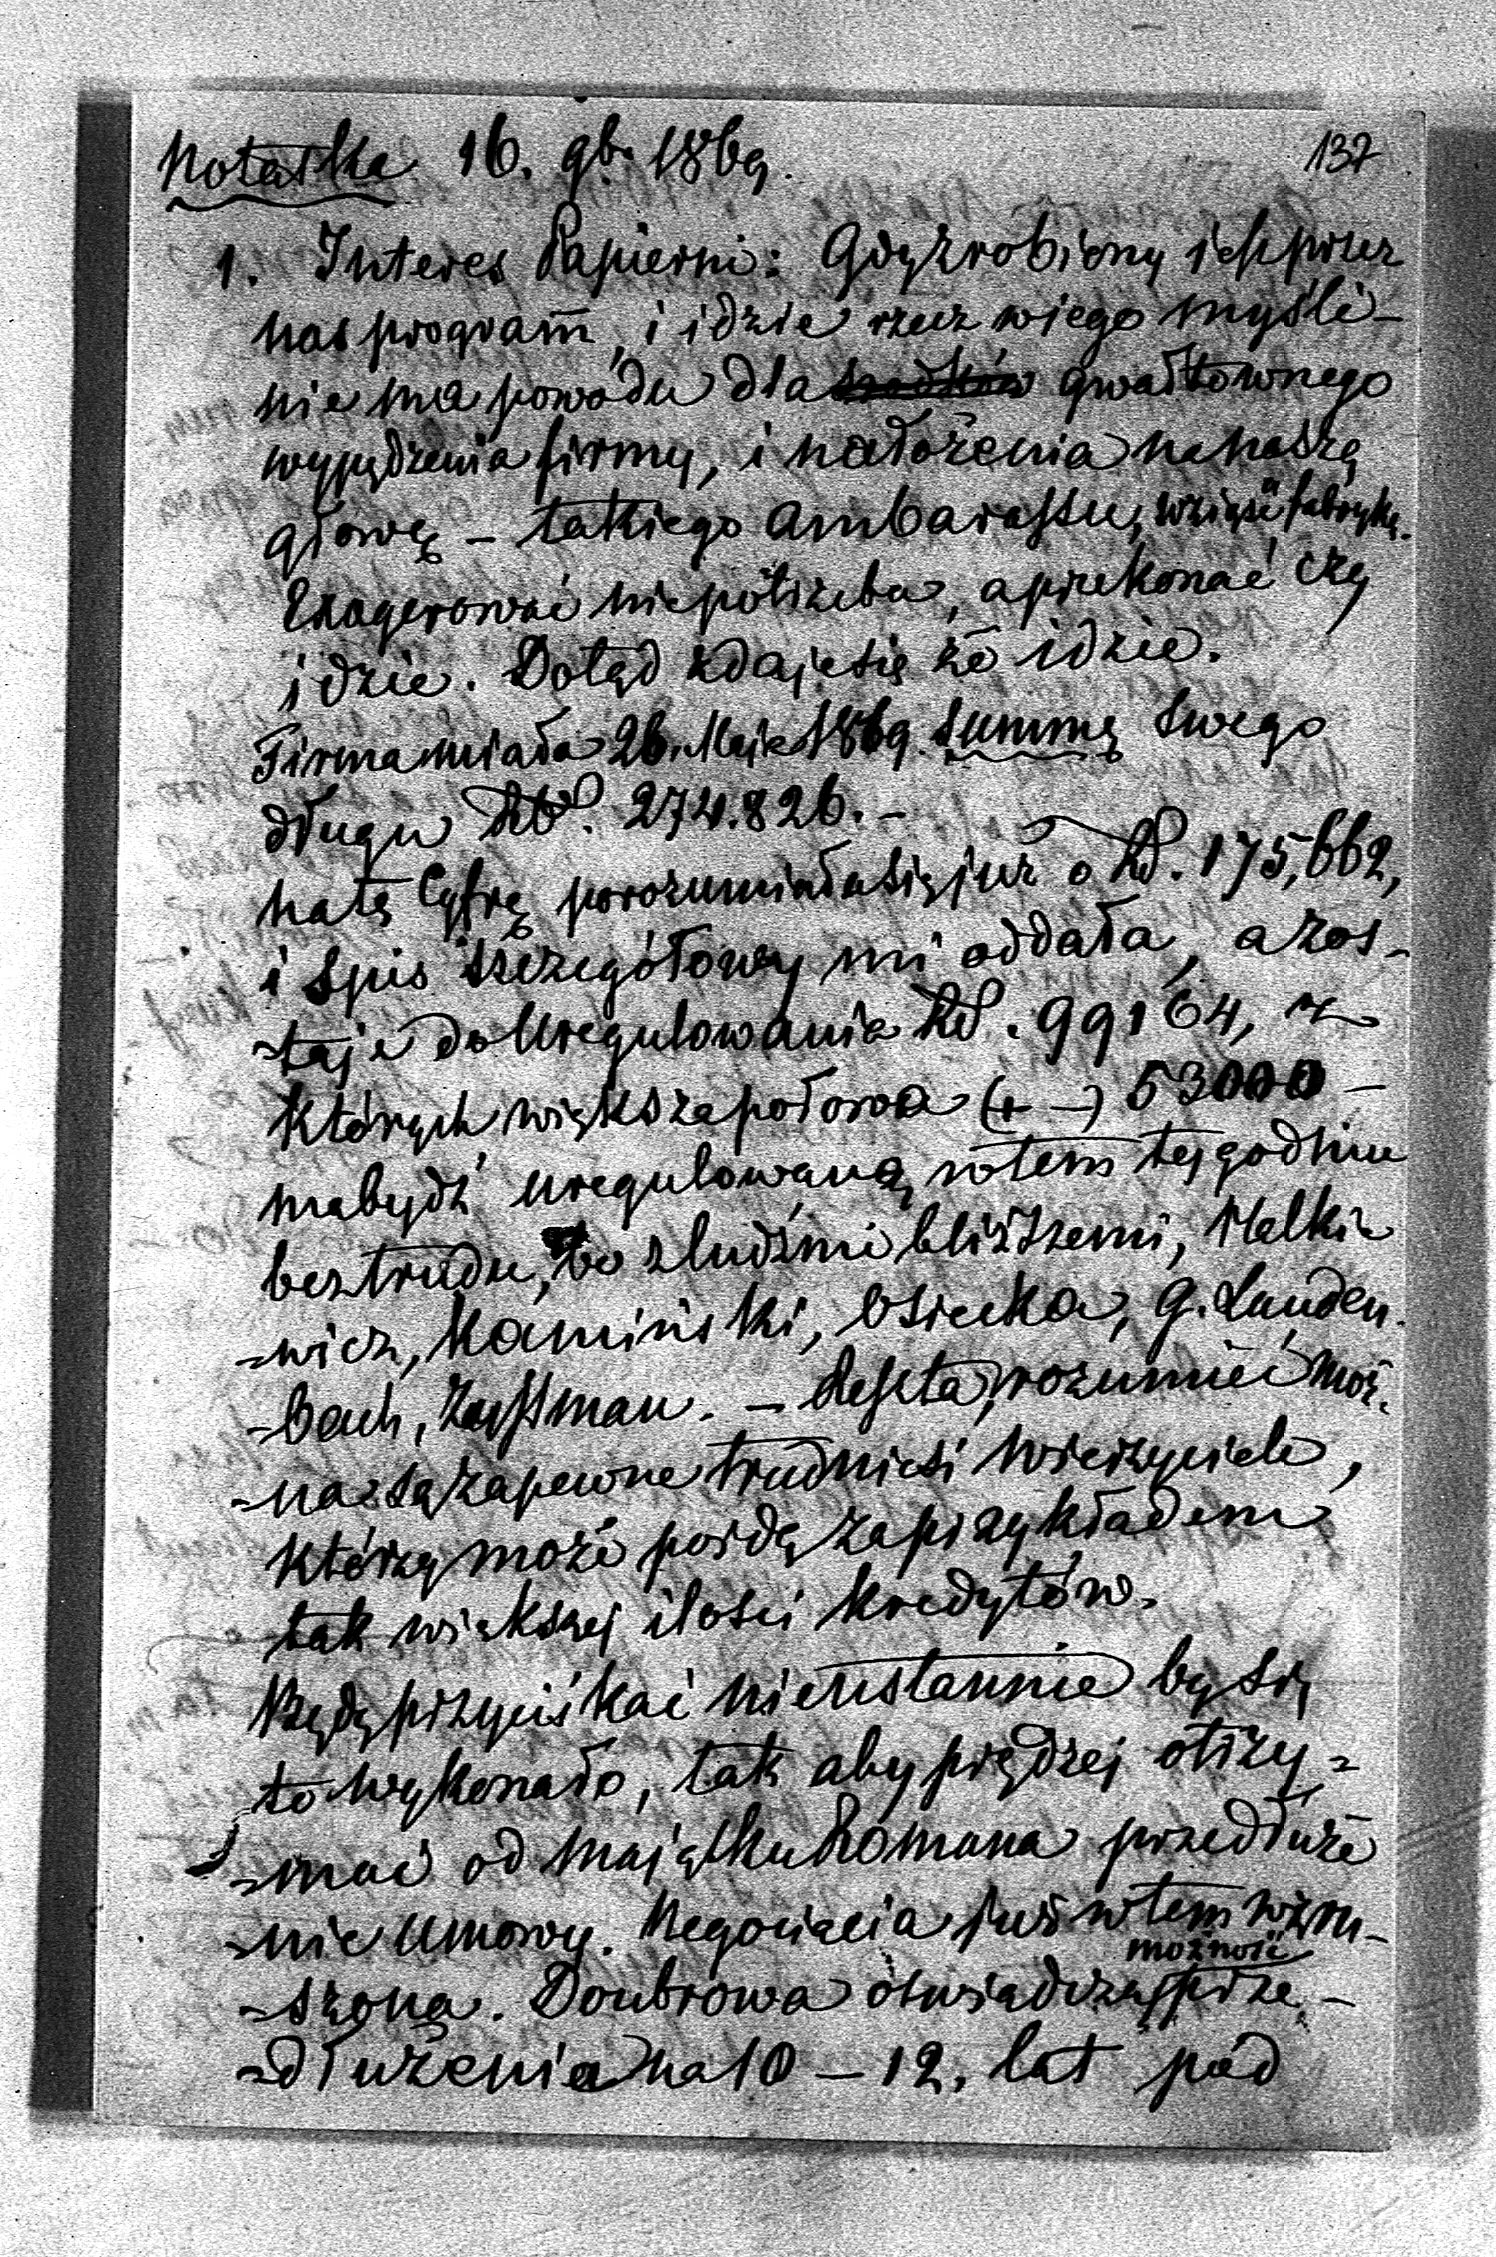 Notatka 16. 9br 1869.
137
1. Interes Papierni: Gdy zrobiony jest przez
nas program, i idzie rzecz wiego myśli –
nie ma powodu dla gwałtownego
wypędzenia firmy, i nałożenia na naszą
głowę – takiego ambarassu, wziąść fabrykę.
Exagerować niepotrzeba, a przekonać czy
idzie. Dotąd zdaje się że idzie.
Firma miała 26. Maja 1869 summę swego
długu 274.826. –
na tę Cyfrę porozumiała się już o 175,662,
i spis szczegółowy mi oddała, a zos-
-taje do uregulowania 99164, z
których większa połowa (+ –) 53000 –
ma bydź uregulowaną w tem tygodniu
bez trudu, bo z ludźmi bliższemi, Malkie
-wicz, Kamiński, Osiecka, G. Lauden.
-bach, Zussman. – Reszta, rozumieć moż.
-na są zapewne trudniesi wierzyciele,
którzy może pójdą za przykładem
tak większej ilości kredytów.
Będę przyciskać nieustannie by się
to wykonało, tak aby prędzej otrzy-
-mać od majątku Romana przedłuże
-nie umowy. Negociacia już w tem wzru-
możność
-szona. Doubrowa oświadcza prze –
-dłużenia na 10 – 12. lat pod